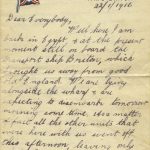 22/1/1916
Dear Everybody,
Well here I am
back in Egypt & at the present
moment still on board the
transport ship Briton, which
brought us away from good
old England. We are lying
alongside the wharf & are
expecting to disembark tomorrow
morning some time. As a matter
of fact all the other units that
were here with us went off
this afternoon, leaving only